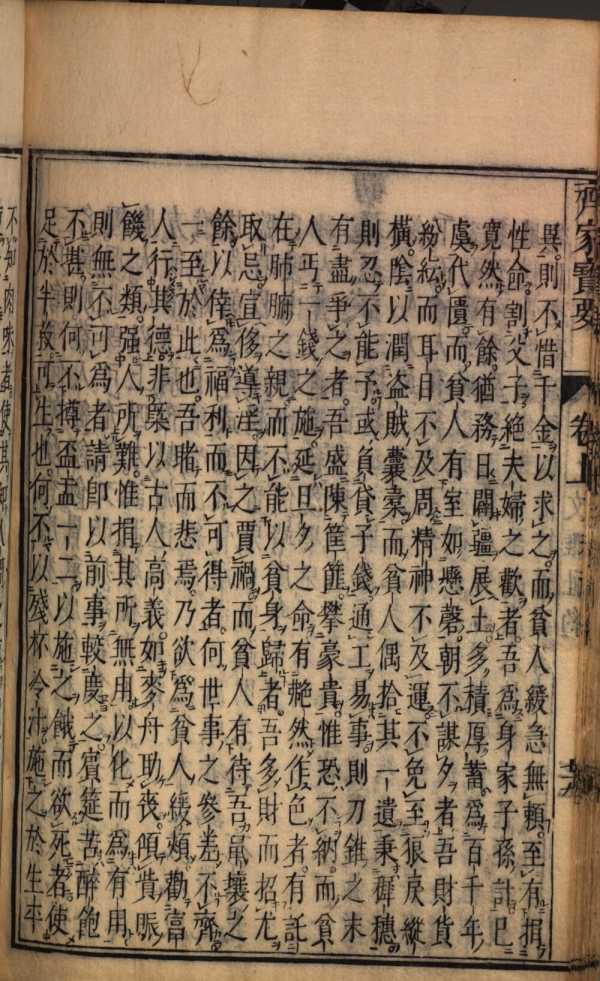 齊家寶要
卷上
異則不惜千金以求之而貧人緩急無賴至有捐
性命割父子絕夫婦之歡者吾為身家子孫計已
寬然有餘猶務日闢疆展土多積厚蓄為百千年
虞代匱而貧人有室如懸磬朝不謀夕者吾財貨
紛紜而耳目不及周精神不及運不免至狼戾縱
橫陰以潤盗賊囊橐而貧人偶拾其一遺秉穉穗
則忍不能予或負貸子錢通工易事則刀錐之末
有盡爭之者吾盛陳筐篚攀豪貴惟恐不納而貧
人丐一錢之施延旦夕之命有艴然作色者有託
在肺腑之親而不能以貧身歸者吾多財而招尤
取忌宣侈導淫因之賈禍而貧人有待吾吊壤之
餘以倖為福利而不可得者何世事之參差不齊
一至於此也吾睹而悲焉乃欲為貧人緩頰勸富
人行其德非槩以古人高義如麥舟助喪傾貲賑
饑之類强人所難惟捐其所無用以化而為有用
則無不可為者請卽以前事較度之賓筵苦醉飽
不甚則何不撙盃盂一二以施之餓而欲死者使
足於半菽可生也何不以殘杯冷汁施之於生平
不知肉味者使其知人間